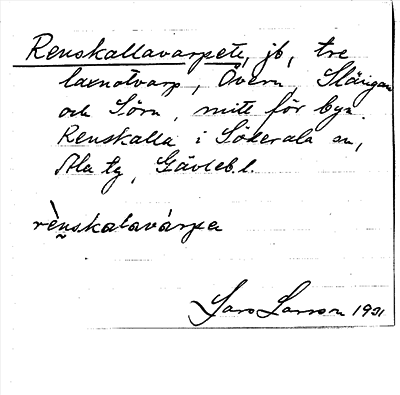 Renskallavarpet, jb, tre
laxnotvarp, Övern, Slängan
och Sörn, mitt för byn
Renskalla i Söderala sn,
Ala tg, Gävleb. l.
rènskalavárpa
Lars Larsson 1931